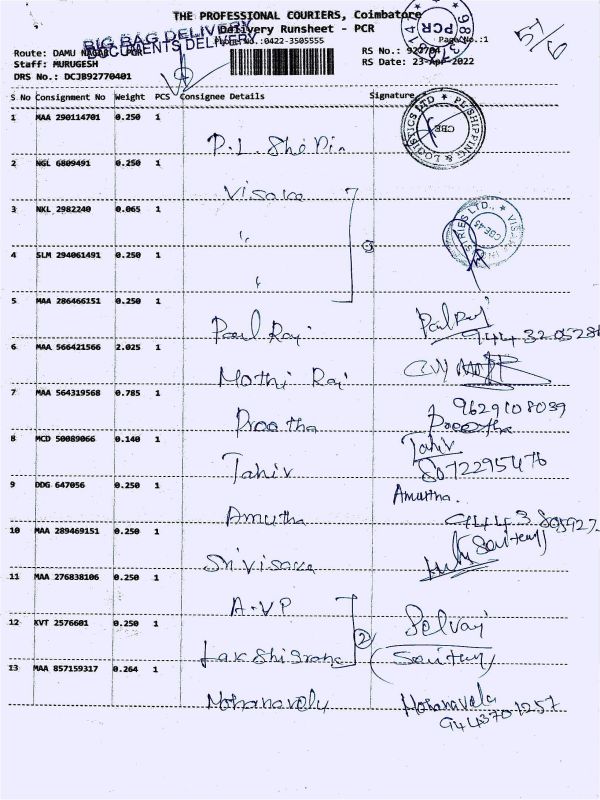 THE PROFESSIONAL COURIERS, Coimbatore
Delivery Runsheet - PCR
BIG BAG DELIVERY
DOCUMENTS DELIVERY
Phone No.:0422-3505555
Page No.:1
Route: DAMU NAGAR
Staff: MURUGESH
RS No.:
RS Date: 23-Apr-2022
DRS No.: DCJB92770401
S No Consignment No Weight PCS Consignee Details Signature
1 MAA 290114701 0.250 1
2 NGL 6809491 0.250 1
Visaka
3 NKL 2982240 0.065 1
"
4 SLM 294061491 0.250 1
"
5 MAA 286466151 0.250 1
Paul Raj Paul Raj
6 MAA 566421566 2.025 1
Mothi Raj
7 MAA 564319568 0.785 1
9629108039
Preetha Preetha
8 MCD 50089066 0.140 1
Tahir Tahir
8072295476
9 DDG 647056 0.250 1
Amutha Amutha.
10 MAA 289469151 0.250 1
Sri Visaka
11 MAA 276838106 0.250 1
A.VP
12 KVT 2576601 0.250 1
2
Selvaj
13 MAA 857159317 0.264 1
Mohanavelu Mohanavelu
9443701257
PL SHIPPING & LOGISTICS LTD
CBE